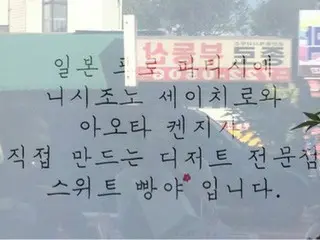 부동산
일본 프로 파티시에
니시조노 세이치로와
아오타 켄지가
직접 만드는 디저트 전문점
스위트 빵야 입니다.